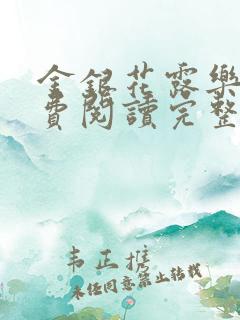 金銀花露樂
費閱讀完整
韦正推
未经同意禁止转载